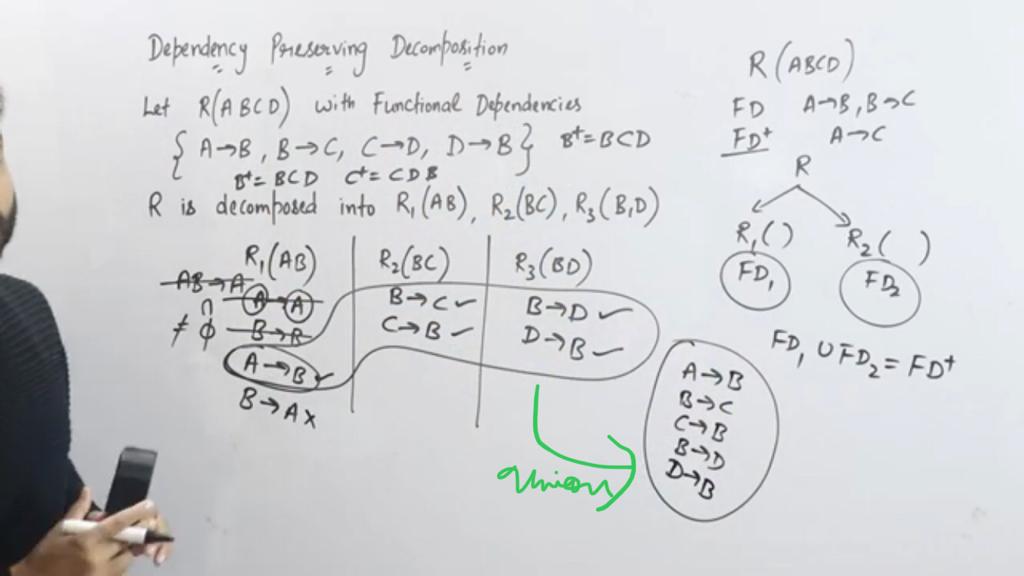 Dependency Preserving Decomposition
Let R(ABCD) with Functional Dependencies
{A→B, B→C, C→D, D→B} B⁺=BCD
B⁺=BCD C⁺=CDB
R is decomposed into R₁(AB), R₂(BC), R₃(B,D)
R₁(AB)
AB→A
A→A
∩
≠ ϕ B→B
A→B ✓
B→A x
R₂(BC)
B→C ✓
C→B ✓
R₃(BD)
B→D ✓
D→B ✓
union
A→B
B→C
C→B
B→D
D→B
R(ABCD)
FD A→B, B→C
FD⁺ A→C
R
R₁( ) R₂( )
FD₁ FD₂
FD₁ ∪ FD₂ = FD⁺